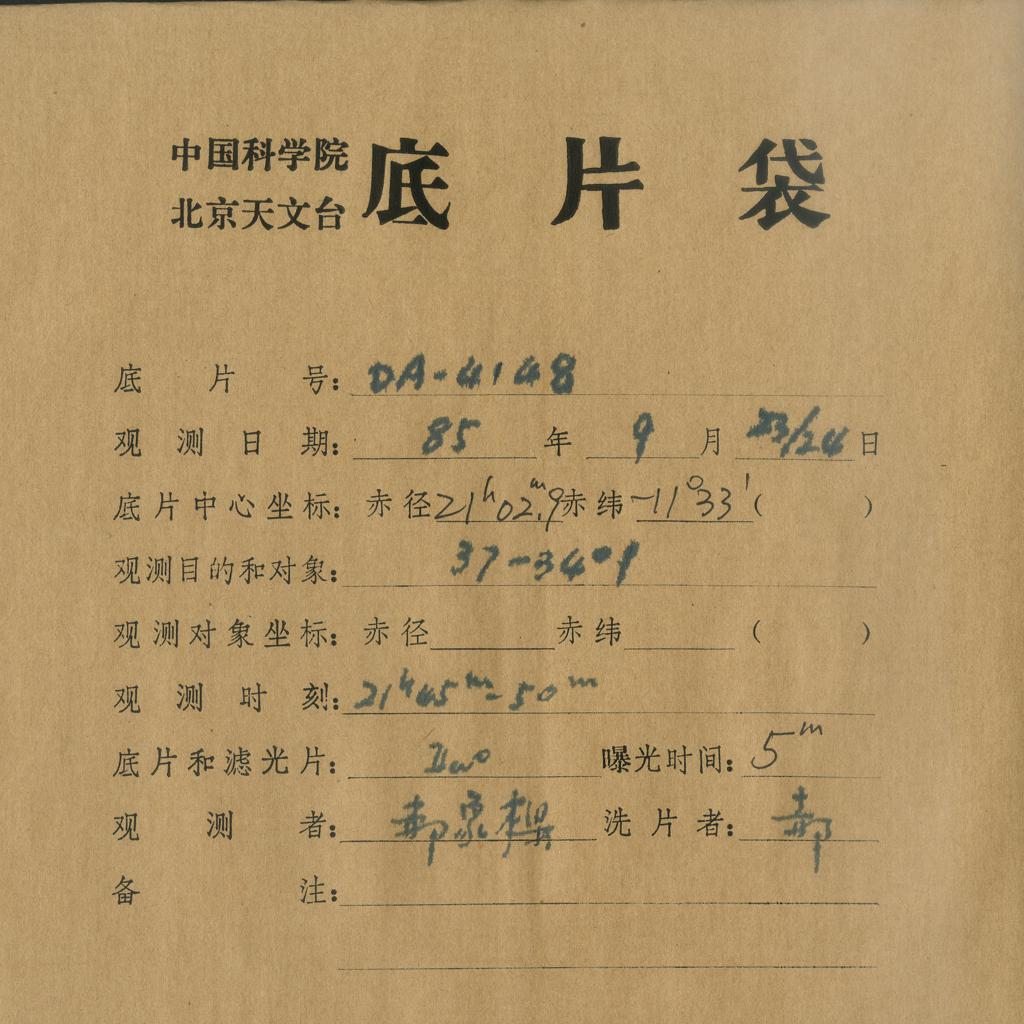 中国科学院
北京天文台
底片袋
底片号: DA-4148
观测日期: 85年9月23/24日
底片中心坐标: 赤径21h02m.9赤纬-11°33'( )
观测目的和对象: 37-34
观测对象坐标: 赤径 赤纬 ( )
观测时刻: 21h45m-50m
底片和滤光片: 曝光时间: 5m
观测者: 郝象樑 洗片者: 郝
备注: